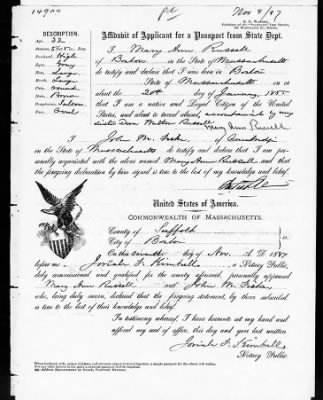 149
pd
Nov 8/87
DESCRIPTION.
Age 32
Stature 5
Forehead High
Eyes Gray
Nose Large
Mouth Large
Chin Round
Hair Brown
Complexion Sallow
Face Oval
Affidavit of Applicant for a Passport from State Dept.
I Mary Ann Russell
of Boston in the State of Massachusetts
do testify and declare that I was born in Boston
State of Massachusetts on or
about the 20th day of January, 1855
that I am a native and Loyal Citizen of the United
States, and about to travel abroad, accompanied by my
Russell
Mary Ann Russell
I John M. of Cambridge
in the State of Massachusetts do testify and declare that I am
personally acquainted with the above named Mary Ann Russell, and that
the foregoing declaration by him signed is true to the best of my knowledge and belief.
United States of America.
COMMONWEALTH OF MASSACHUSETTS.
County of Suffolk
City of Boston
On this seventh day of Nov. A.D. 1887
before me Josiah F. Kimball, a Notary Public,
duly commissioned and qualified for the county aforesaid, personally appeared
Mary Ann Russell and John M.
who, being duly sworn, declared that the foregoing statement, by them subscribed
is true to the best of their knowledge and belief.
In testimony whereof, I have hereunto set my hand and
official seal of office, this day and year last written
Josiah F. Kimball,
Notary Public.